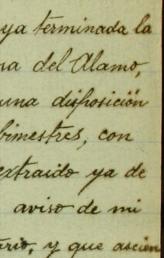 ya terminada la
na del Alamo,
una disposición
bimestres, con
extraido ya de
aviso de mi
torio, y que ascien